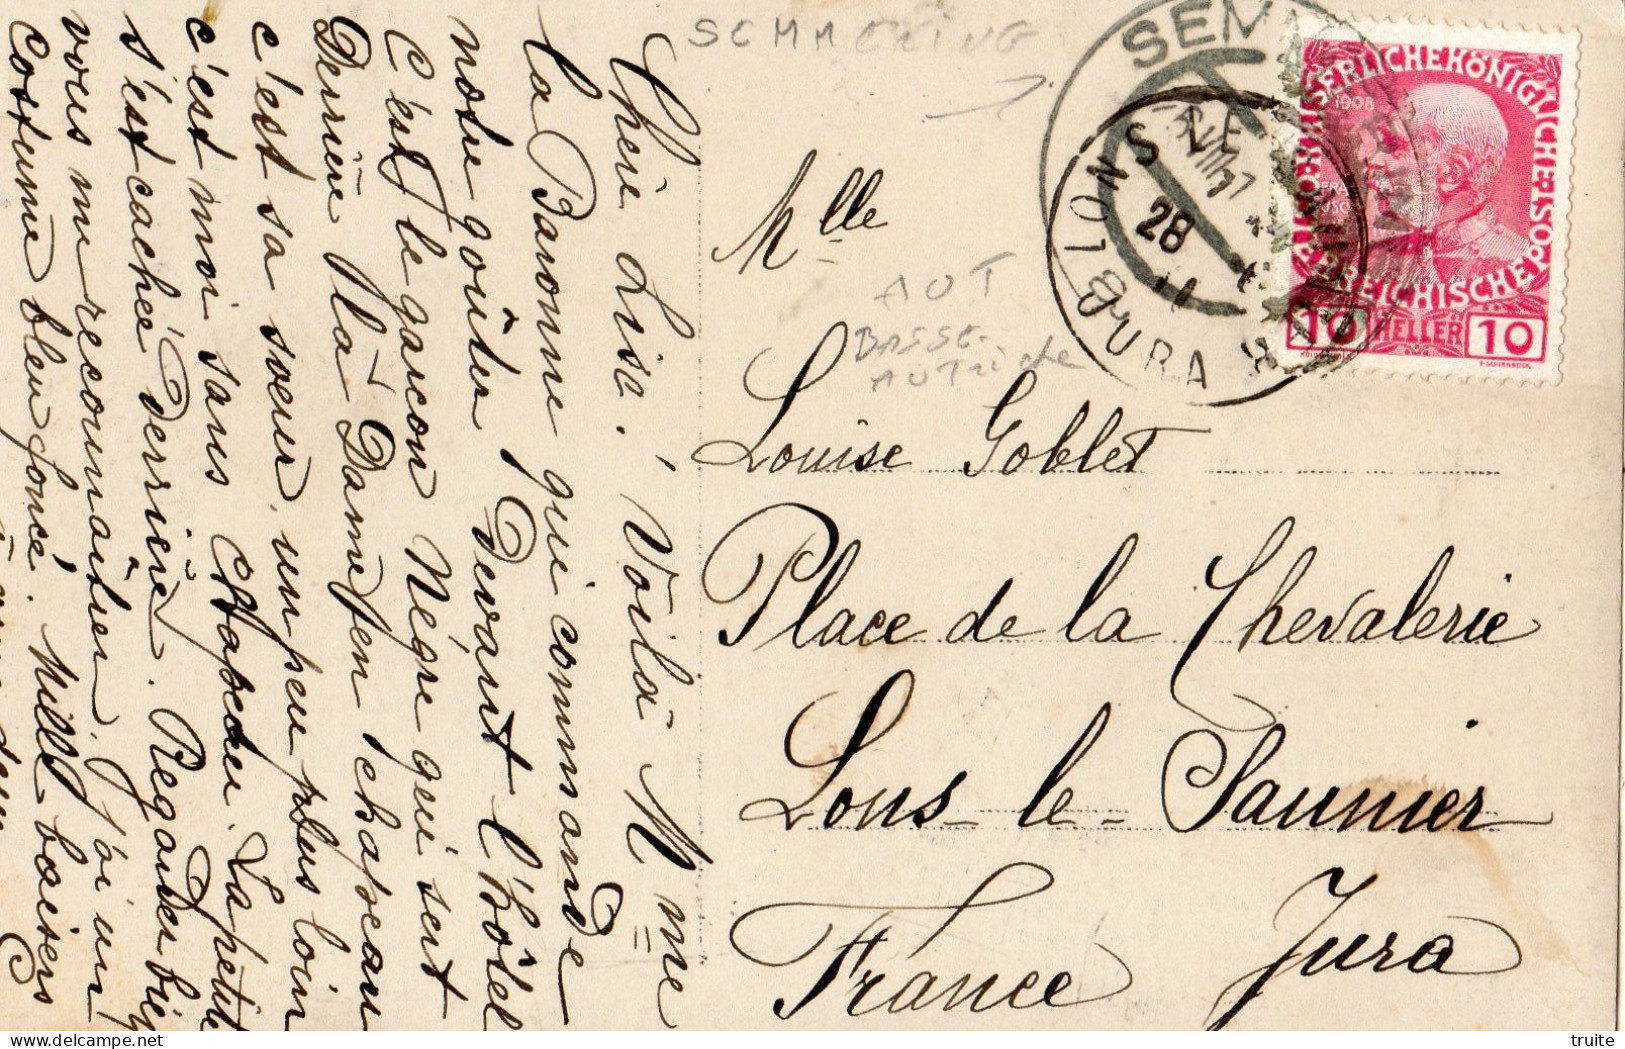 Chère Lisa! Voilà Mme
la Baronne qui commande
notre goûter, Devant l'hôtel
C'est le garçon Nègre qui sert
Derrière "la" Dame en chapeau
c'est sa soeur, un peu plus loin
c'est moi sans chapeau. La petite
s'est cachée Derrière. Regardez bien
vous me reconnaîtrez. J'ai un
costume bleu foncé. Mille baisers
SEMMERING
Mlle
AUT
BASSE-
AUTRICHE
Louise Goblet
Place de la Chevalerie
Lons-le-Saunier
France Jura
SEM
LONS LE
28
JURA
KAISERLICHE KÖNIGLICHE ÖSTERREICHISCHE POST
1908
10 HELLER 10
truite